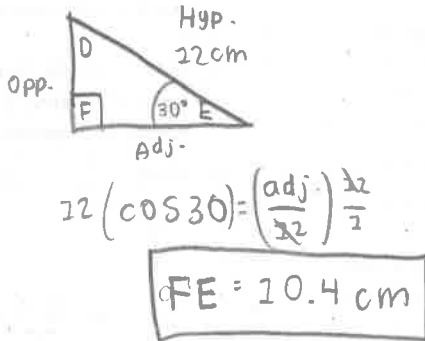 Hyp.
12cm
D
Opp.
F
30° E
Adj.
12(cos30)=(adj/12) 12/1
FE = 10.4 cm